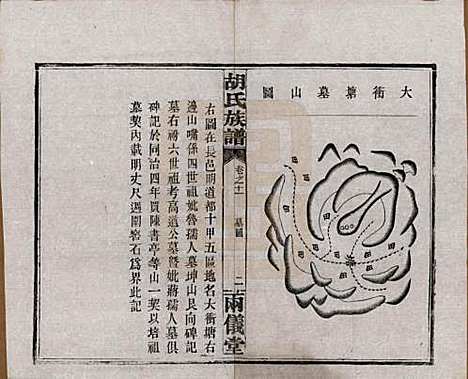 大衝塘墓山圖
田
田
田
塘
胡氏族譜
卷之十
墓圖
二
兩儀堂
右圖在長邑明道都十甲五區地名大衝塘右
邊山嘴係四世祖妣虢孺人墓坤山艮向又
墓右磅六世祖考高道公墓曁妣蔣孺人墓俱
碑記於同治四年買陳書亭等山一契以培祖
墓契內載明丈尺週圍窖石爲界此記